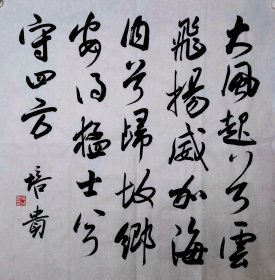 大風起兮雲
飛揚威加海
內兮歸故鄉
安得猛士兮
守四方
培貴